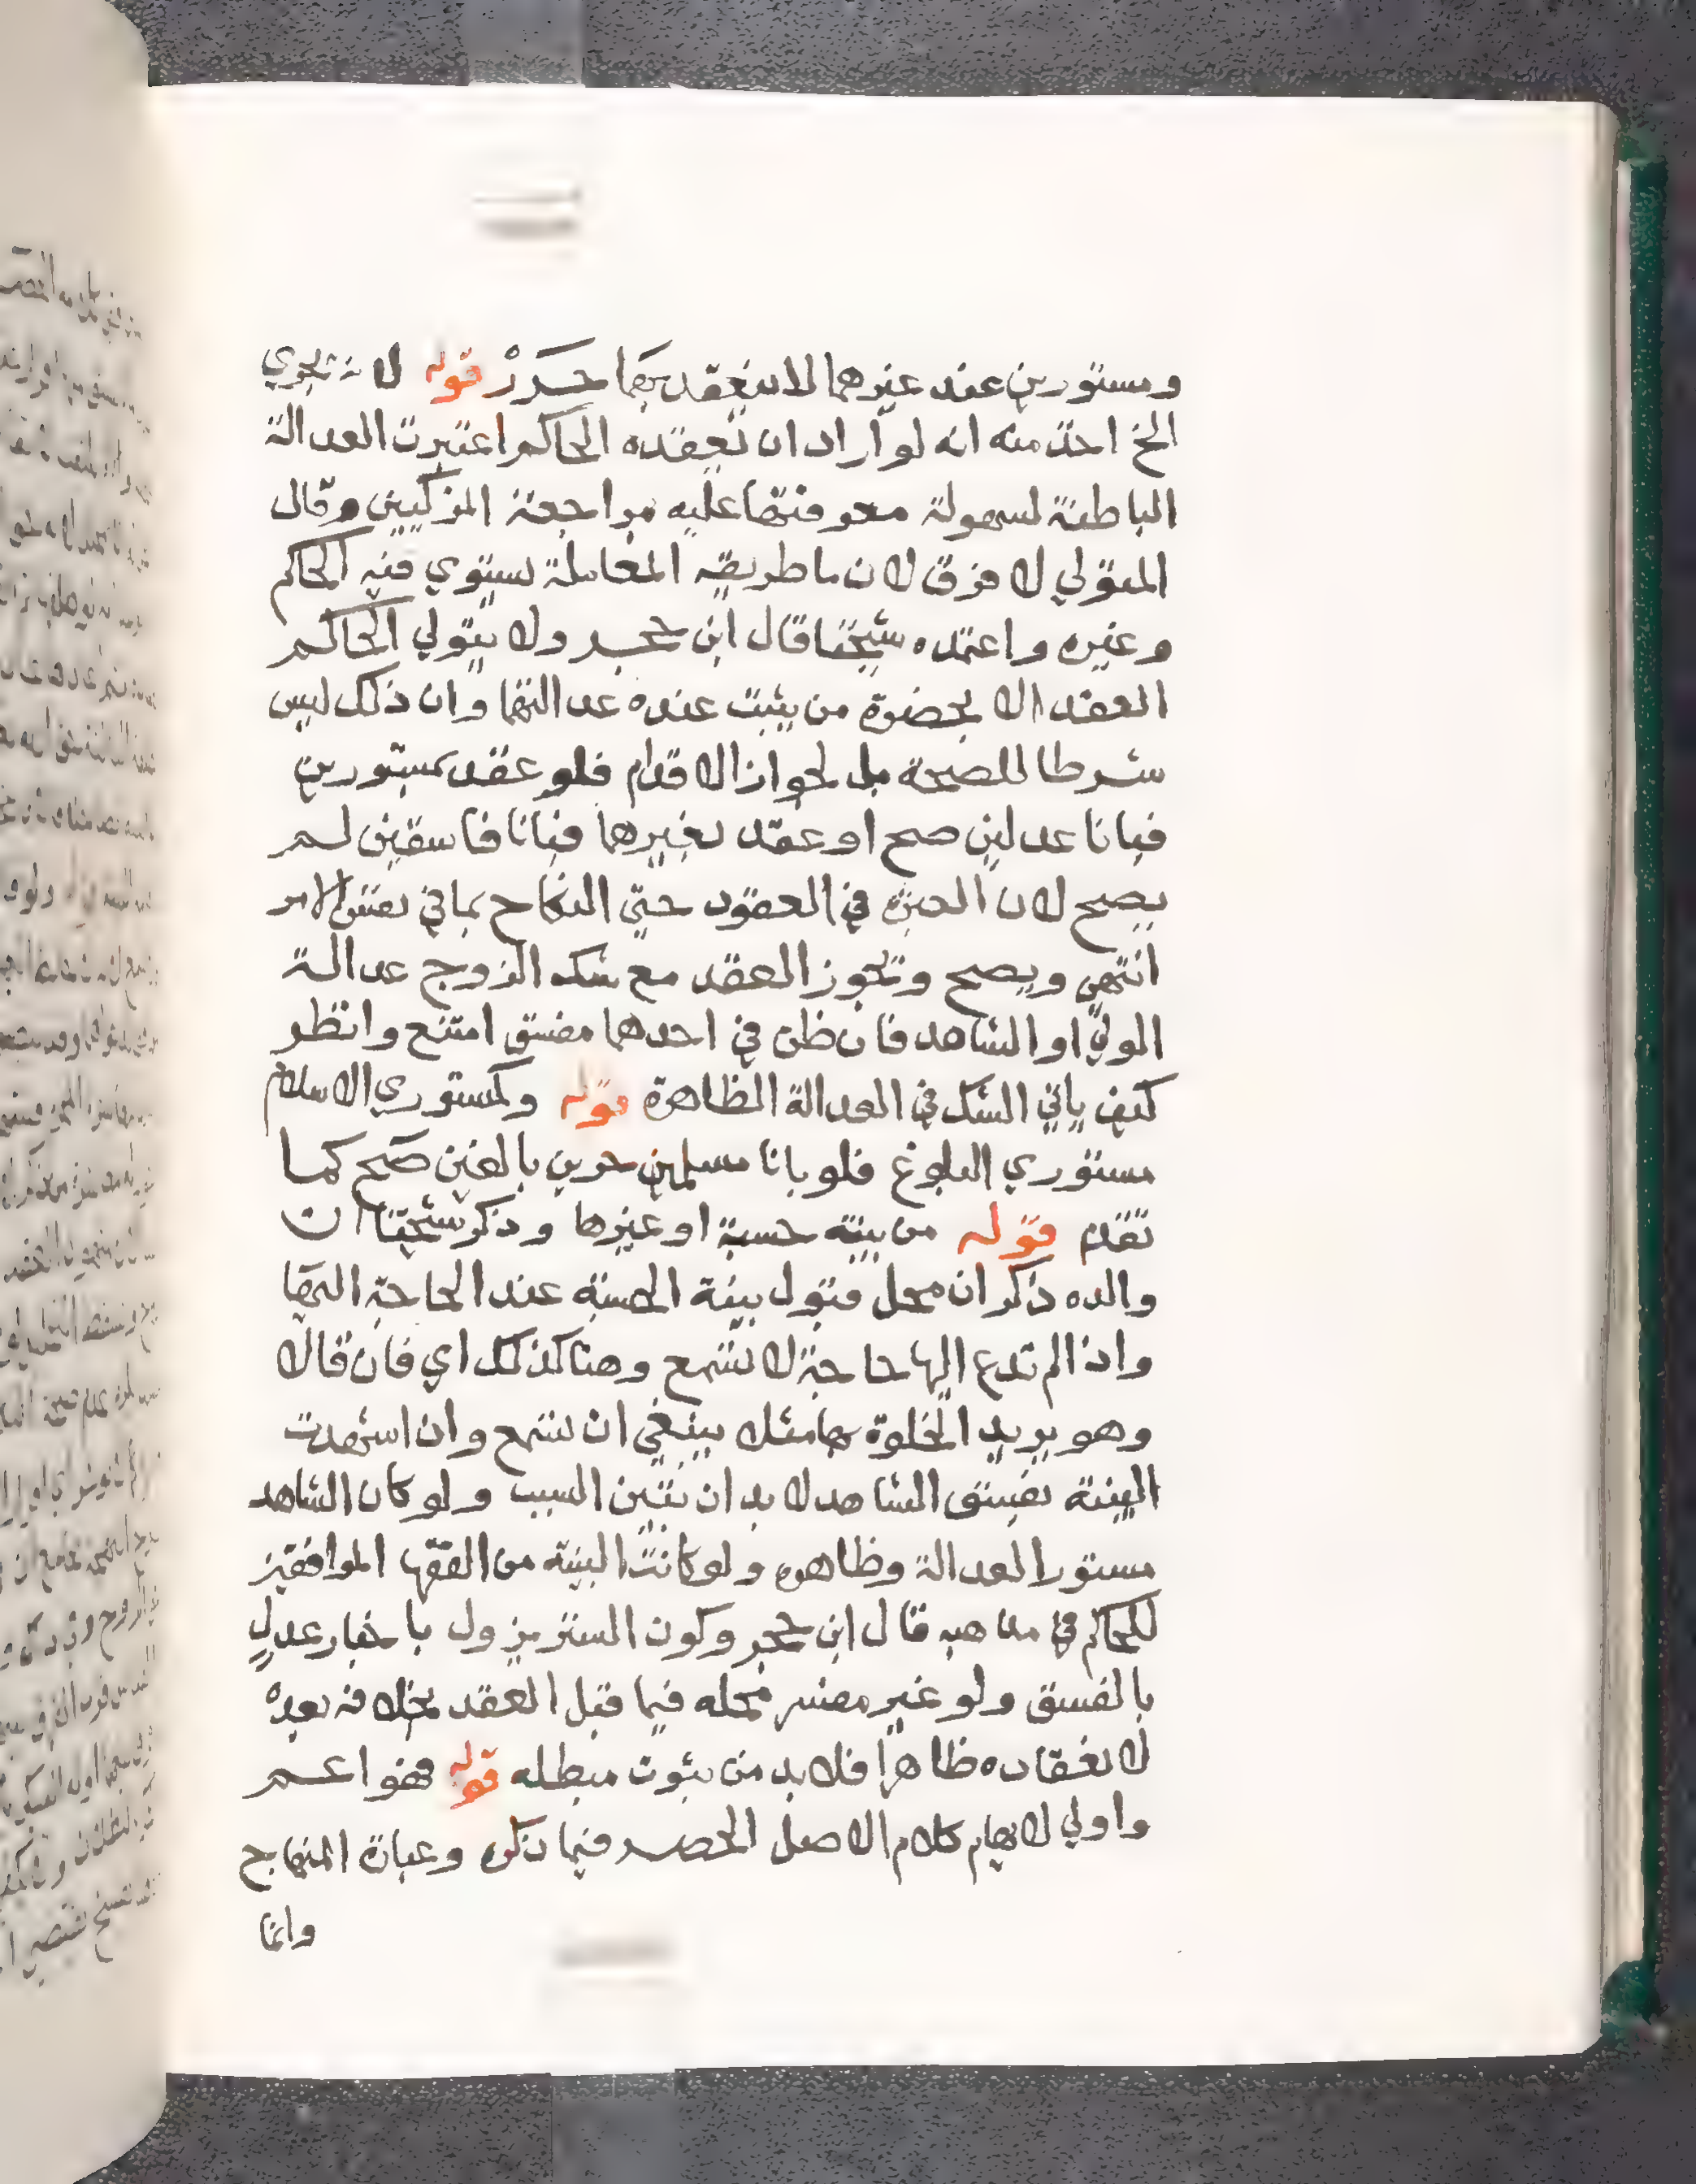 ومستورين عند غيرهما لا ينعقد بهما حرر قوله لانه يجري
الخ احد منه انه لو اراد ان يعقده الحاكم اعتبرت العدالة
الباطنة لسهولة معرفتها عليه مراجعة المزكيين وقال
المتولي لا فرق لان ما طريقه المعاملة يستوي فيه الحاكم
وغيره واعتمده شيخنا قال ابن حجر ولا يتولي الحاكم
العقد الا بحضرة من يثبت عنده عدالتهما وان ذلك ليس
شرطا للصحة بل لجواز الاقدام فلو عقد بمستورين
فبانا عدلين صح او عقد بغيرهما فبانا فاسقين لم
يصح لان العبرة في العقود حتي النكاح بما في نفس الامر
انتهي ويصح ويجوز العقد مع شك الزوج عدالة
الولي او الشاهد فان ظن في احدهما مفسق امتنع وانظر
كيف ياتي الشك في العدالة الظاهرة قوله وكمستوري الاسلام
مستوري البلوغ فلو بانا مسلمين حرين بالغين صح كما
تقدم قوله من بينة حسبة او غيرها وذكر شيخنا ان
والده ذكر ان محل قبول بينة الحسبة عند الحاجة اليها
واذا لم تدع اليها حاجة لا تسمع وهنا كذلك اي فان قالا
وهو يريد الخلوة بها مثلا ينبغي ان تسمع وان اشهدت
البينة بفسق الشاهد لا بد ان تبين السبب ولو كان الشاهد
مستور العدالة وظاهره ولو كانت البينة من الفقها الموافقين
للحاكم في مذاهبه قال ابن حجر وكون الستر يزول باخبار عدل
بالفسق ولو غير مفسر محله فيما قبل العقد بخلافه بعده
لانعقاده ظاهرا فلا بد من ثبوت مبطله قوله فهو اعم
واولي لايهام كلام الاصل الحصر فيما ذكره وعبارة المنهاج
وانما